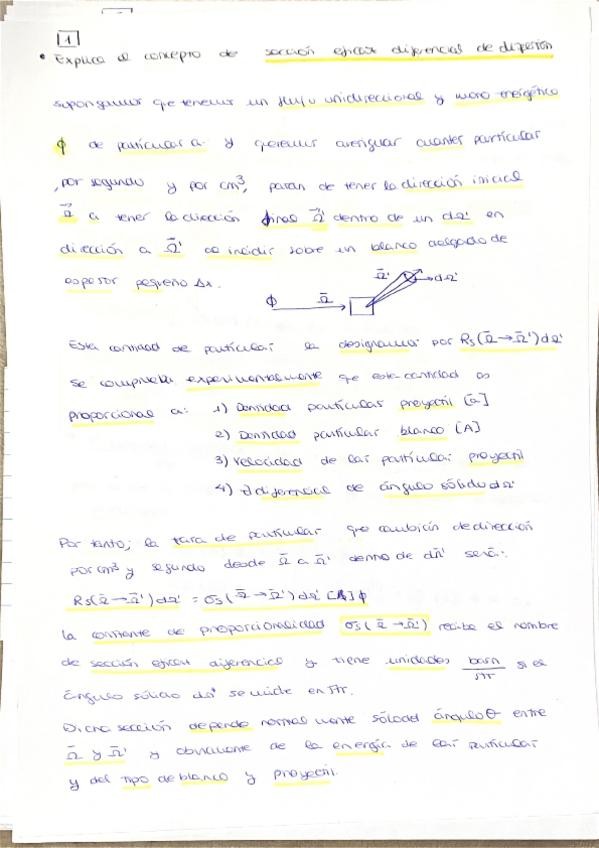 1
• Explica el concepto de sección eficaz diferencial de dispersión
supongamos que tenemos un flujo unidireccional y mono energético
ϕ de partículas a y queremos averiguar cuantas partículas
, por segundo y por cm³, pasan de tener la dirección inicial
Ω⃗ a tener la dirección final Ω̄' dentro de un dΩ' en
dirección a Ω̄' al incidir sobre un blanco delgado de
espesor pequeño Δx.
ϕ Ω̄ Ω̄' dΩ'
Esta cantidad de partículas la designamos por Rs(Ω̄→Ω̄')dΩ'
Se comprueba experimentalmente que esta cantidad es
proporcional a: 1) Densidad partículas proyectil [a]
2) Densidad partículas blanco [A]
3) Velocidad de las partículas proyectil
4) diferencial de ángulo sólido dΩ'
Por tanto; la tasa de partículas que cambian de dirección
por cm³ y segundo desde Ω̄ a Ω̄' dentro de dΩ̄' será:
Rs(Ω̄→Ω̄')dΩ' = σs(Ω̄→Ω̄')dΩ' [A]ϕ
La constante de proporcionalidad σs(Ω̄→Ω̄') recibe el nombre
de sección eficaz diferencial y tiene unidades barn/str si el
ángulo sólido dΩ' se mide en str.
Dicha sección depende normalmente sólo del ángulo θ entre
Ω̄ y Ω̄' y obviamente de la energía de las partículas
y del tipo de blanco y proyectil.